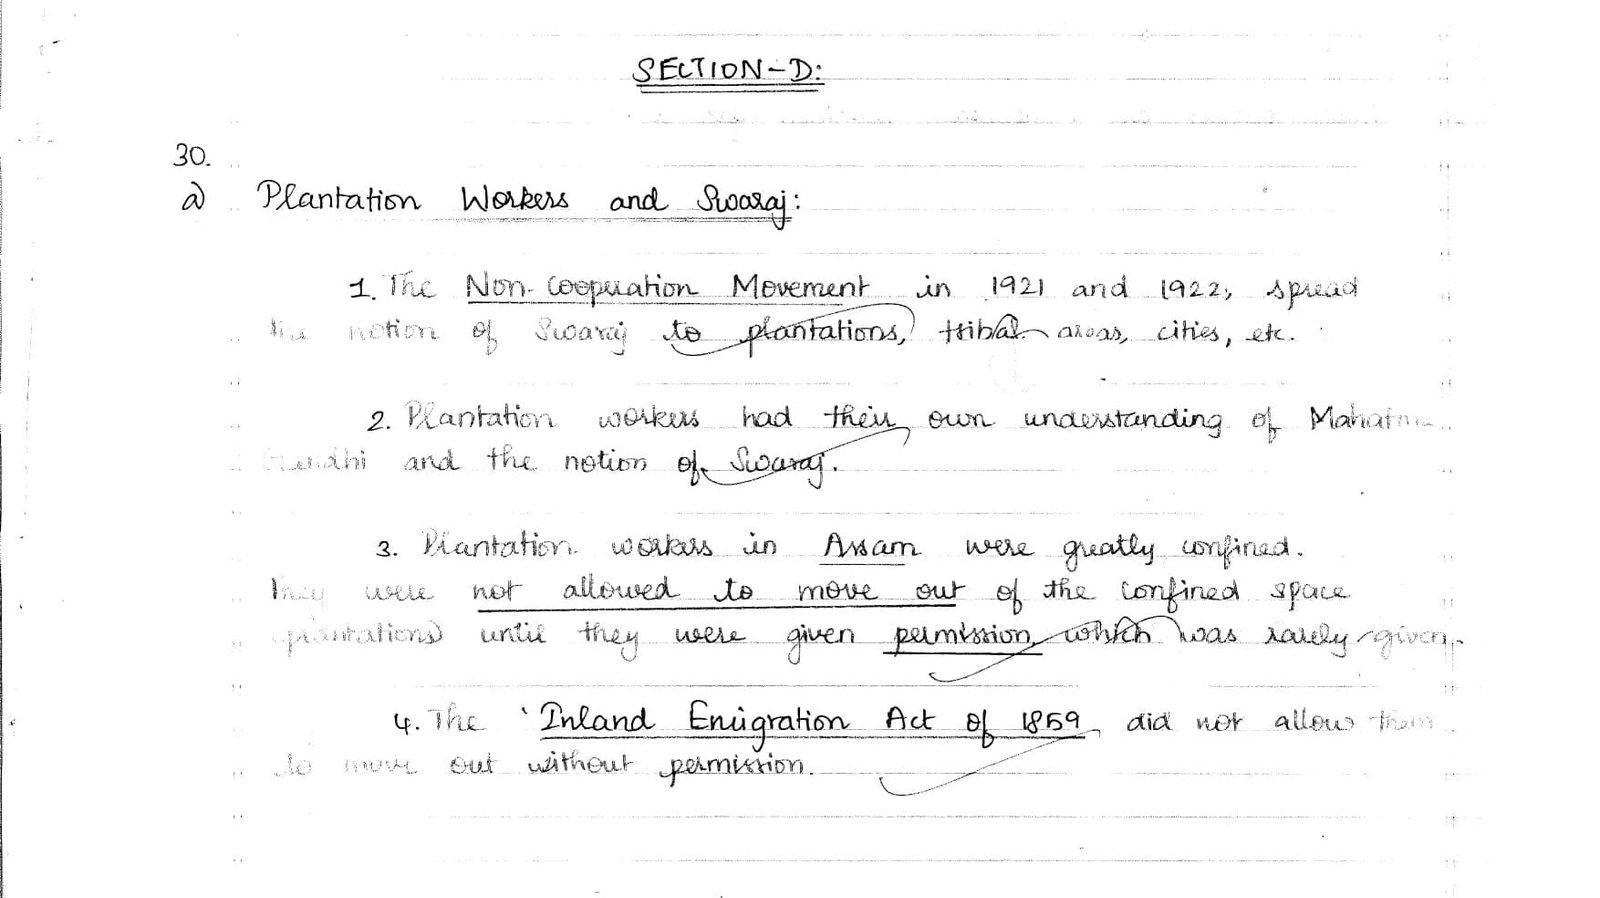 SECTION-D:
30.
a) Plantation Workers and Swaraj:
1. The Non-Cooperation Movement in 1921 and 1922, spread
the notion of Swaraj to plantations, tribal areas, cities, etc.
2. Plantation workers had their own understanding of Mahatma
Gandhi and the notion of Swaraj.
3. Plantation workers in Assam were greatly confined.
They were not allowed to move out of the confined space
(plantations) until they were given permission, which was rarely given.
4. The 'Inland Emigration Act of 1859, did not allow them
to move out without permission.